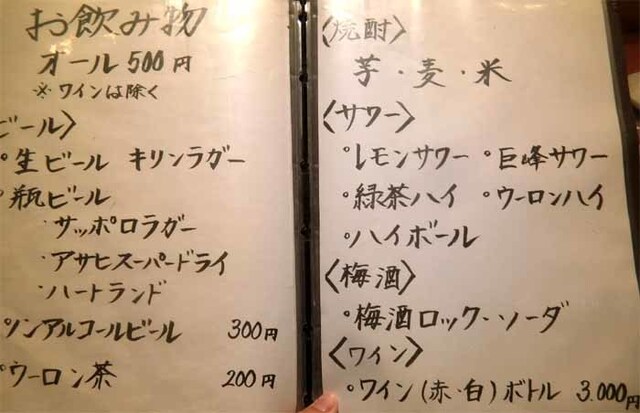 お飲み物
オール 500円
※ワインは除く
ビール〉
°生ビール キリンラガー
°瓶ビール
・サッポロラガー
・アサヒスーパードライ
・ハートランド
ノンアルコールビール 300円
ウーロン茶 200円
〈焼酎〉
芋・麦・米
〈サワー〉
°レモンサワー °巨峰サワー
°緑茶ハイ °ウーロンハイ
°ハイボール
〈梅酒〉
°梅酒ロック・ソーダ
〈ワイン〉
°ワイン(赤・白)ボトル 3.000円